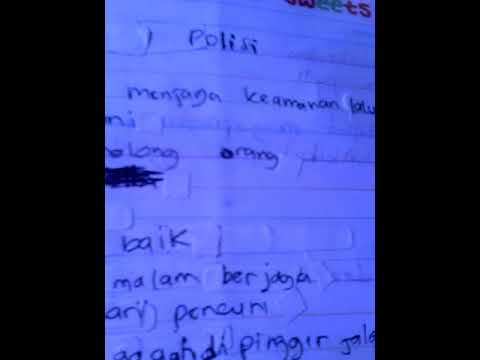 sweets
) Polisi
menjaga keamanan lalu
ni
olong orang
baik
malam berjaga
ari pencuri
di pinggir jala